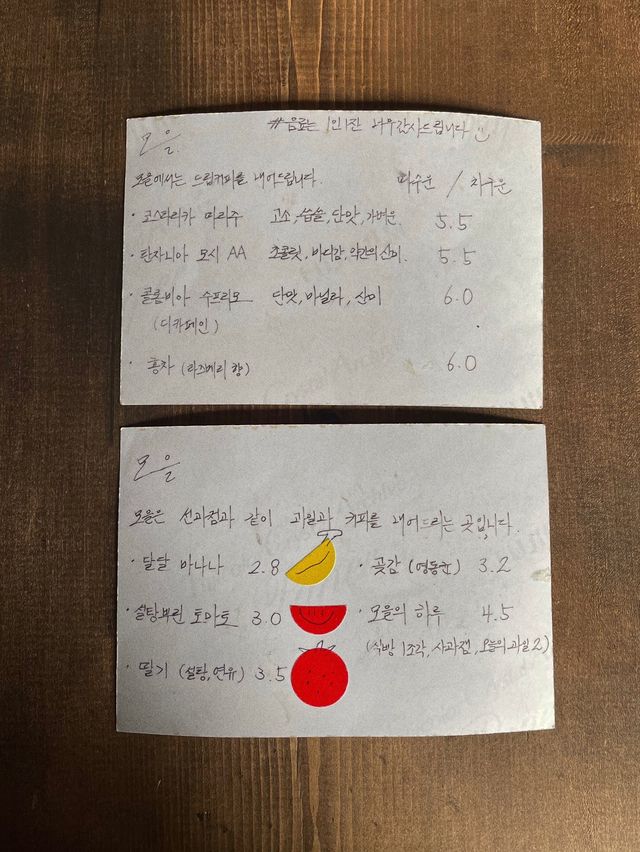 #음료는 1인1잔 너무감사드립니다
모을
모을에서는 드립커피를 내어드립니다. 따수운 / 차가운
· 코스타리카 따라주 고소, 씁쓸, 단맛, 가벼운. 5.5
· 탄자니아 모시 AA 초콜릿, 바디감, 약간의 산미. 5.5
· 콜롬비아 수프리모 단맛, 바닐라, 산미 6.0
(디카페인)
· 홍차 (라즈베리 향) 6.0
모을
모을은 선과점과 같이 과일과 커피를 내어드리는 곳입니다.
· 달달 바나나 2.8 · 곶감 (영동군) 3.2
· 설탕뿌린 토마토 3.0 · 모을의 하루 4.5
(식빵 1조각, 사과잼, 오늘의 과일 2)
· 딸기 (설탕, 연유) 3.5